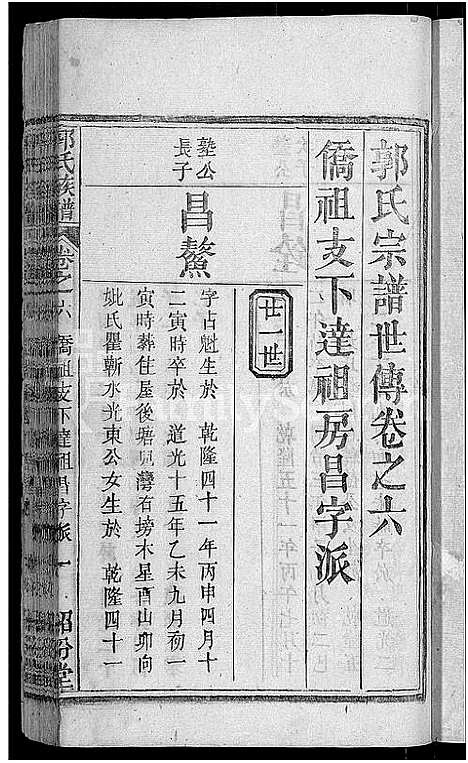 郭氏宗譜世傳卷之六
僑祖支下達祖房昌字派
廿一世
塾公
長子
昌鰲
字占魁生於 乾隆四十一年丙申四月十
二寅時卒於 道光十五年乙未九月初一
寅時葬住屋後塘兒灣右塝木星酉山卯向
妣氏瞿蘄水光東公女生於 乾隆四十一
郭氏族譜 卷之六 僑祖支下達祖昌字派 一